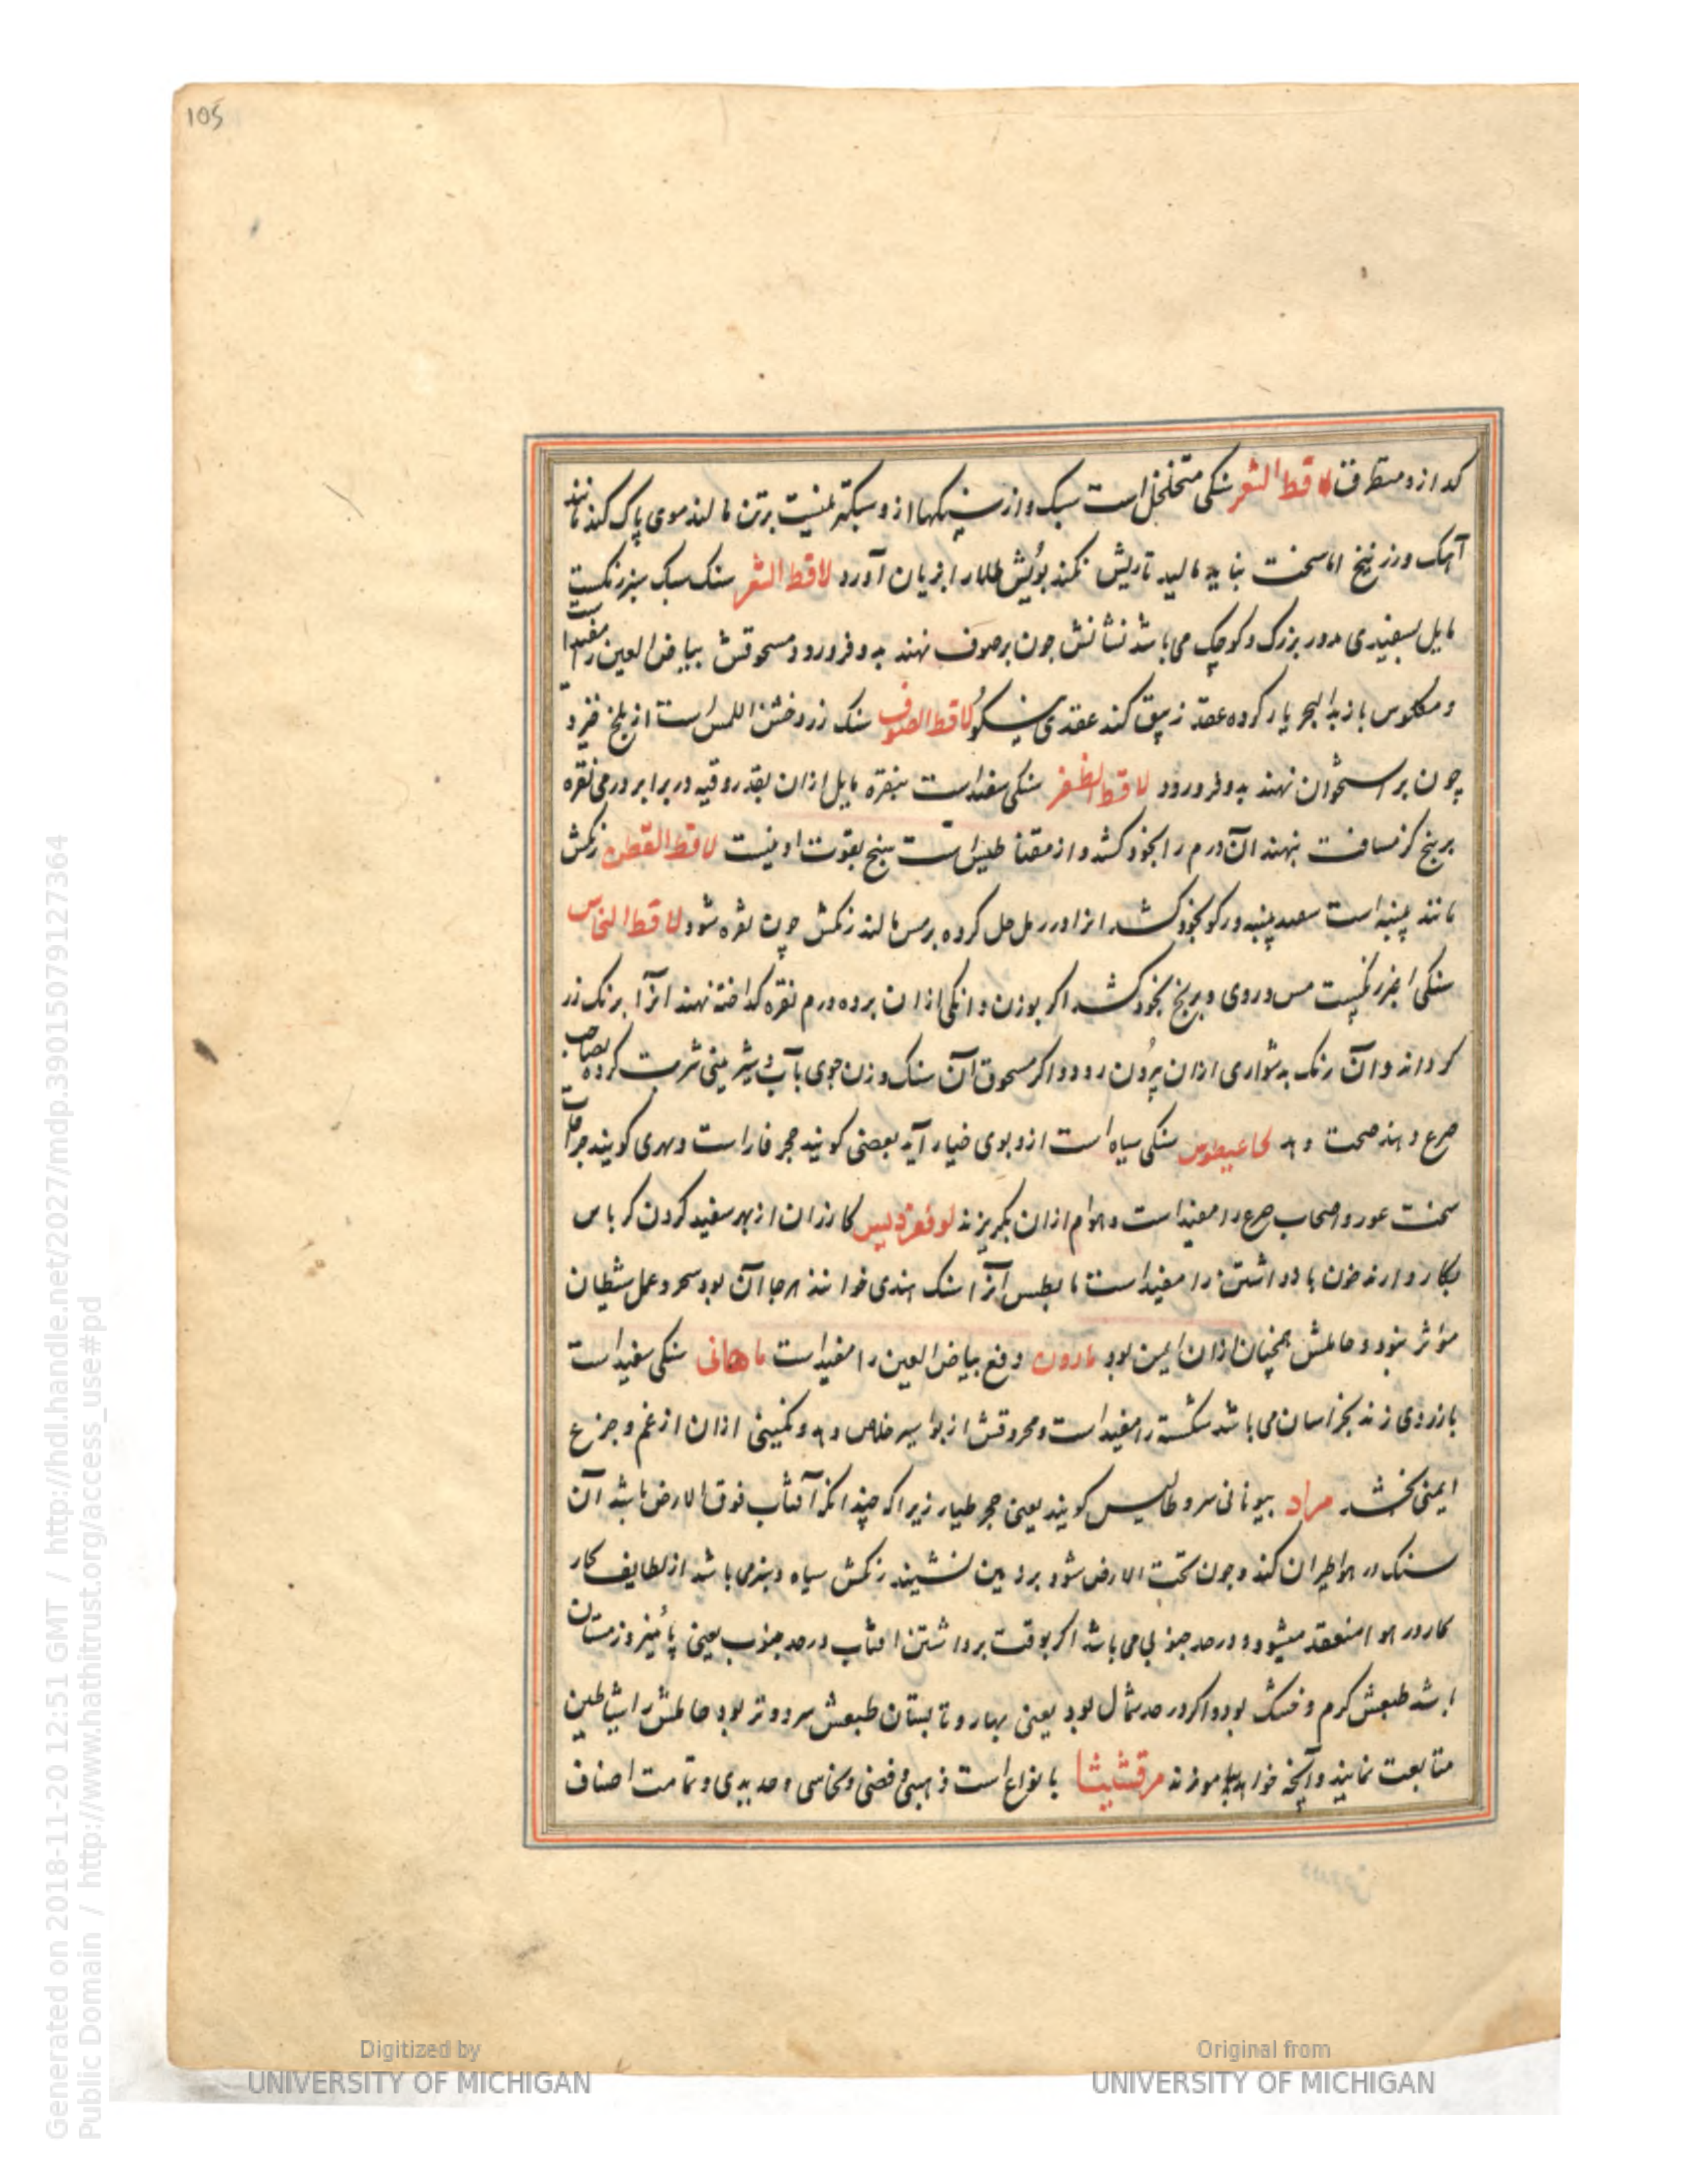 105
لاقط الشعر سنکی متخلخل است سبک و از سنکها ازو سبکتر نیست برتن مالند موی پاک کند مانند
آهک و زرنیخ اما سخت نباید مالید تا ریش نکند بویش را بزیان آورد لاقط الشعر سنک سبک سبز رنکست
مایل بسفیدی مدور بزرک و کوچک می باشد نشانش چون بر صوف نهند بدو فرو رود و مسحوقش بیاض العین را مفید است
و مکلوس با زبد البحر یار کرده عقد زیبق کند عقدی نیکو لاقط الصوف سنک زرد خشن اللمس است از بلخ خیزد
چون بر استخوان نهند بدو فرو رود لاقط الظفر سنکی سفید است بنقره مایل ازان بقدر وقیه در برابر درمی نقره
بر پنج کز مسافت بنهند آن درم را بخود کشد و از مقناطیس است هیچ بقوت او نیست لاقط القطن رنکش
مانند پنبه است پنبه در کو بخود کشد انرا در رمل حل کرده برمس مالند رنکش چون نقره شود لاقط النحاس
سنکی اغبر رنکست مس و روی و برنج بخود کشد اکر بوزن دانکی ازان بر ده درم نقره کداخته نهند انرا برنک زر
کرداند و آن رنک بدشواری ازان بیرون رود و اکر مسحوق آن سنک وزن جوی بآب شربت کرده بصاحب
صرع دهند صحت دهد سنکی سیاه است ازو بوی خیار آید بعضی کویند حجر فار است
سخت عود و اصحاب صرع را مفید است و هوام ازان بکریزند کازران از بهر سفید کردن کرباس
بکار دارند خون باز داشتن را مفید است مابطیس آنرا سنک هندی خوانند هرجا آن بود سحر و عمل شیطان
مؤثر نبود و حاملش همچنان ازان ایمن بود مارون دفع بیاض العین را مفید است ماهانی سنکی سفید است
بازردی زند بخراسان می باشد شکسته را مفید است و محروقش از بواسیر خلاص دهد و نکینی ازان از غم و جزع
ایمنی بخشد مراد بیونانی سروطالیس کویند یعنی حجر طیار زیرا که چندانکه آفتاب فوق الارض باشد آن
سنک در هوا طیران کند و چون تحت الارض شود بر زمین نشیند رنکش سیاه و سبز می باشد از لطایف کار
کار در هوا منعقد میشود و در حد جنوبی می باشد اکر بوقت برداشتن افتاب در حد جنوب یعنی پائیز و زمستان
باشد طبعش کرم و خشک بود و اکر در حد شمال بود یعنی بهار و تابستان طبعش سرد و تر بود حاملش را شیاطین
متابعت نمایند و آنچه خواهد بیاموزند مرقشیثا بانواع است ذهبی و فضی و نحاسی و حدیدی و تمامت اصناف
Generated on 2018-11-20 12:51 GMT / http://hdl.handle.net/2027/mdp.39015079127364
Public Domain / http://www.hathitrust.org/access_use#pd
Digitized by
UNIVERSITY OF MICHIGAN
Original from
UNIVERSITY OF MICHIGAN